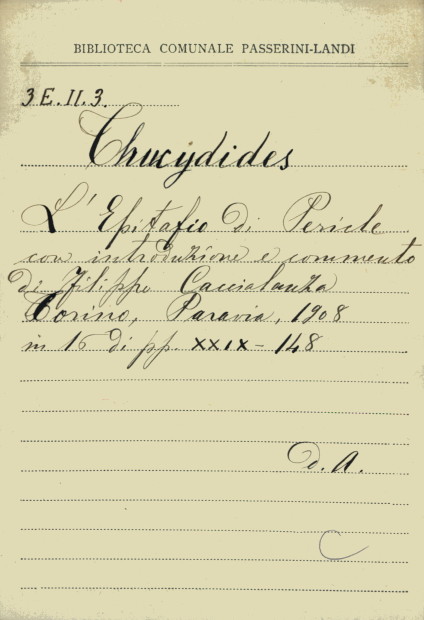 BIBLIOTECA COMUNALE PASSERINI-LANDI
3 E. II. 3.
Thucydides
L'Epitafio di Pericle
con introduzione e commento
di Filippo Caccialanza
Torino, Paravia, 1908
in 16 di pp. XXIX - 148
D. A.
C